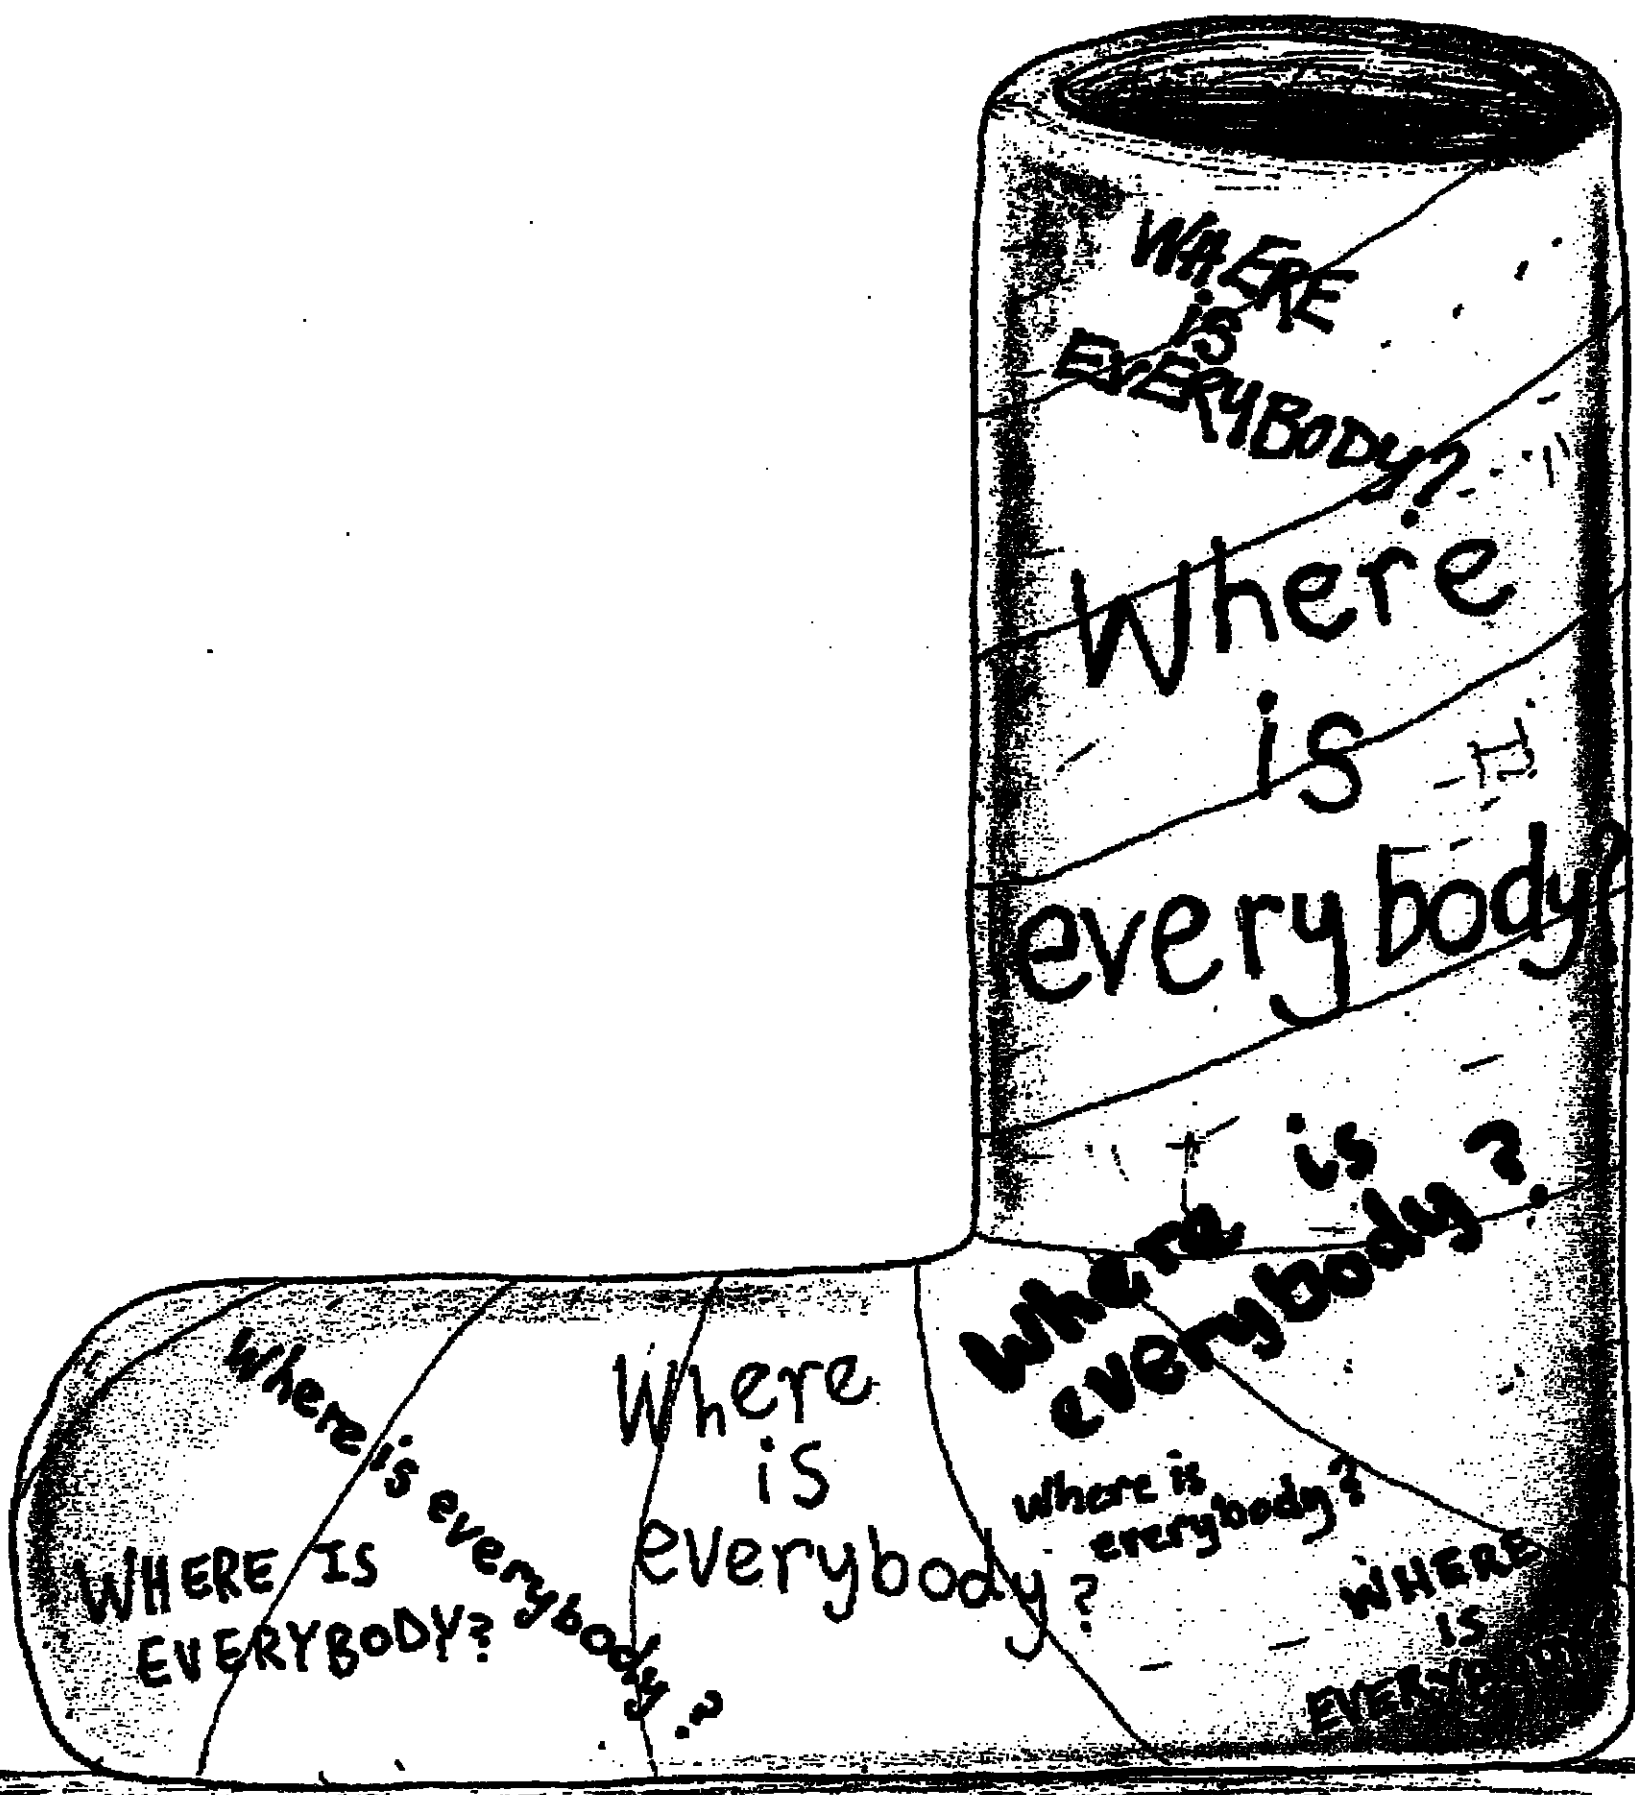 WHERE
is
EVERYBODY?
Where
is
everybody?
Where is
everybody?
Where is everybody?
Where
is
everybody?
where is
everybody?
WHERE IS
EVERYBODY?
WHERE
IS
EVERYBODY